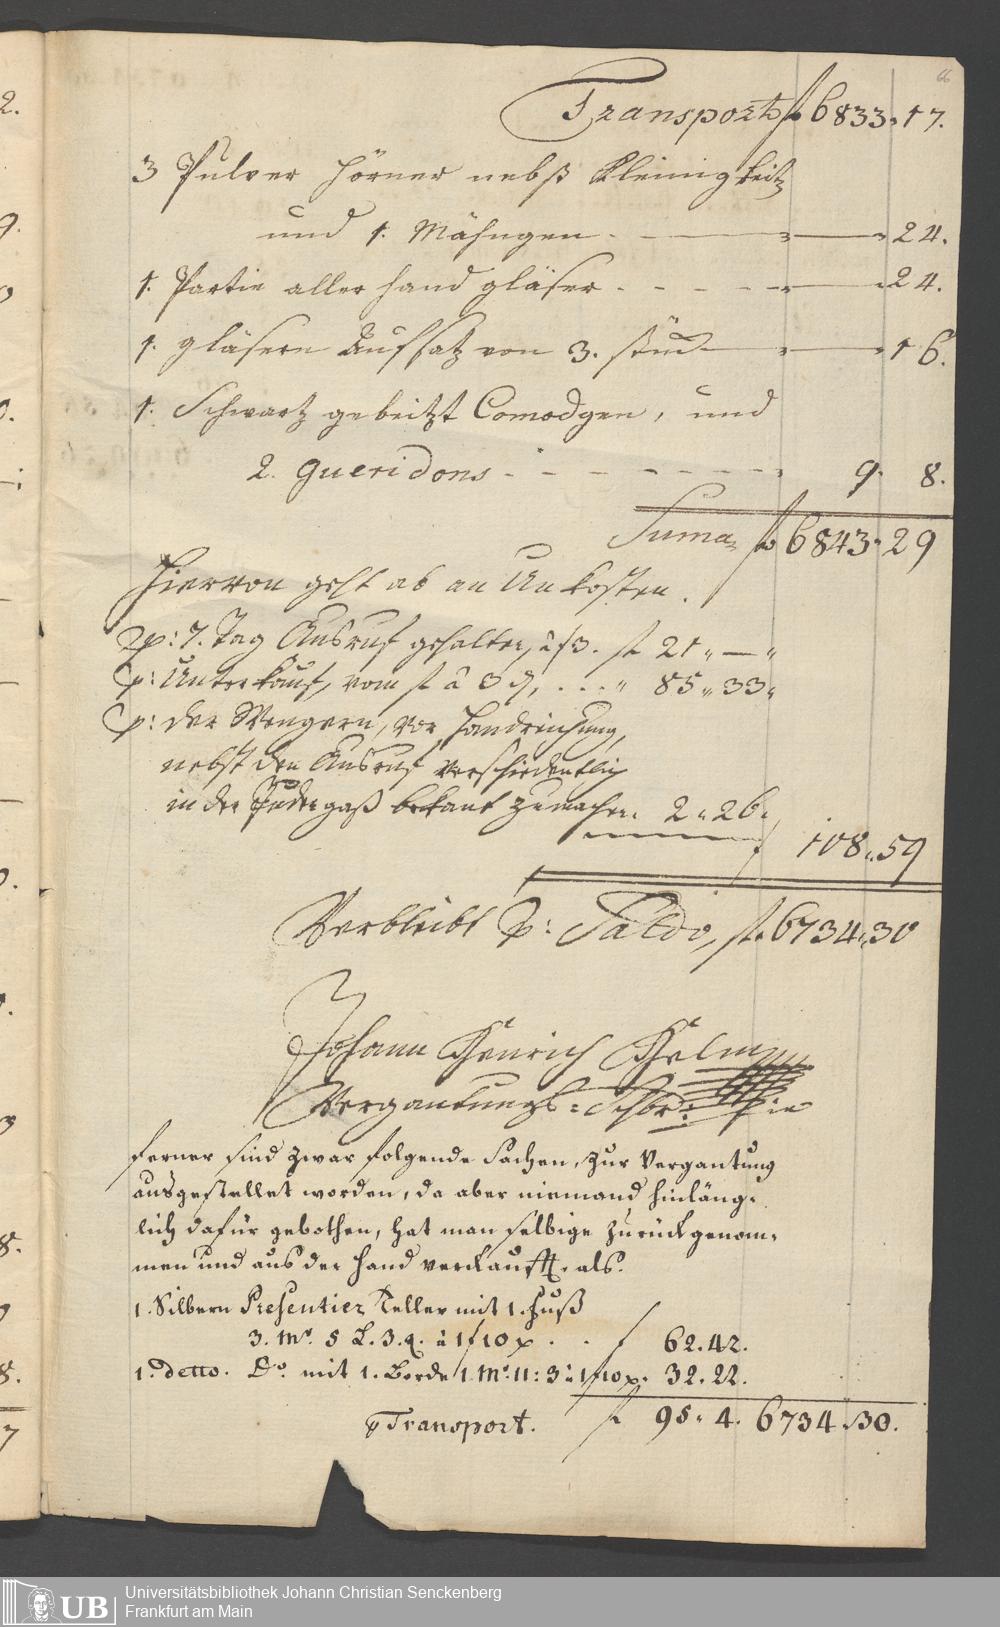 66
Transport f 6833. 17.
3 Pulver Hörner nebst Kleinigkeit
und 1. Mäsngen. — — „ 24.
1. Partie aller hand gläser. - - - - „ 24.
1. gläsern Aufsatz von 3. stük — — „ 16.
1. Schwartz gebeitzt Comodgen, und
2. Gueridons - - - - - - 9. 8.
Suma f 6843. 29
Hiervon geht ab an Unkosten.
p: 7. Tag Ausruf gehalten, â f3. f 21 „ — „
p: Unterkauf, vom f â 3 d, . . . „ 85 „ 33 „
p: der Mengern, vor Handreichung,
nebst den Ausruf verschiedentlich
in der Judengaß bekant zumachen. 2 „ 26 „
f 108 „ 59
Verbleibt p: Saldo, f 6734 „ 30
Johann Henrich Helm
Vergantungs=Schbr:
Ferner sind zwar folgende Sachen, zur Vergantung
ausgestellet worden, da aber niemand hinläng-
lich dafür gebothen, hat man selbige zurückgenom-
men und aus der Hand verkaufft. als.
1. Silbern Presentier Teller mit 1. Fuß
3. Mc. 5 L. 3. q. â 1 f 10 x . . f 62. 42.
1. detto. Do. mit 1. Borde 1. Mc. 11: 3 â 1 f 10 x. 32. 22.
Transport. f 95. 4. 6734. 30.
UB
Universitätsbibliothek Johann Christian Senckenberg
Frankfurt am Main